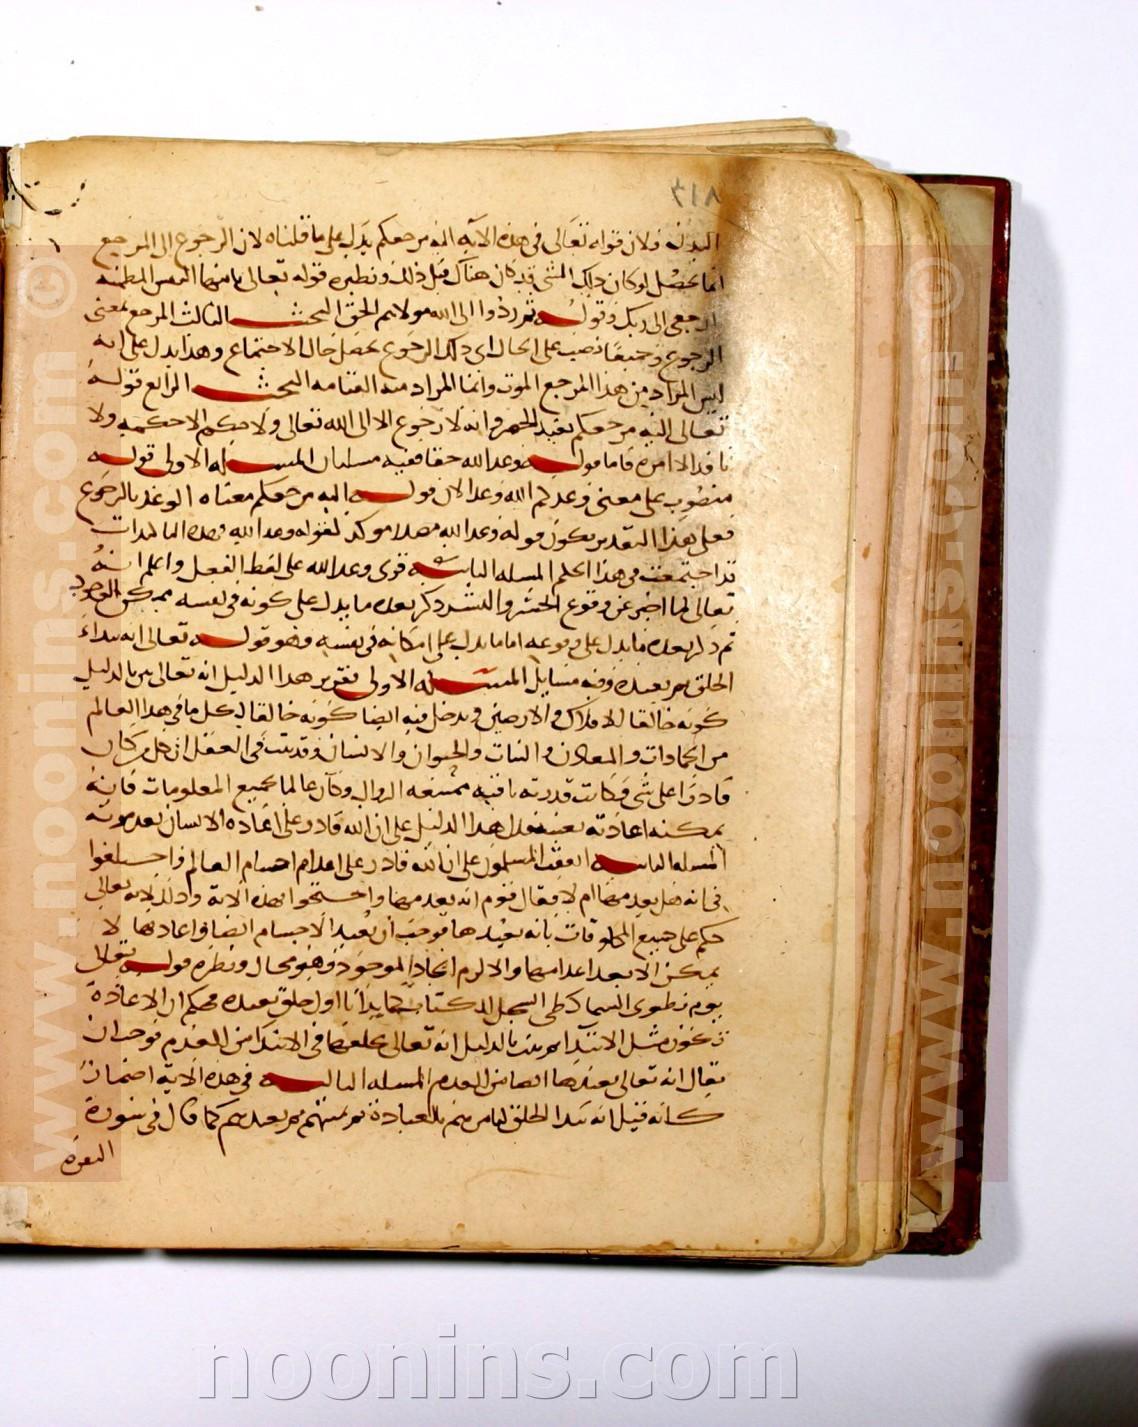 ٨١٦
البدنه ولان قوله تعالى فى هذه الآيه اليه مرجعكم يدل على ما قلناه لان الرجوع الى المرجع
انما يحصل لو كان ذلك الشى قد كان هناك قبل ذلك ونظيره قوله تعالى يا ايتها النفس المطمنه
ارجعى الى ربك وقوله ثم ردوا الى الله مولاهم الحق البحث الثالث المرجع بمعنى
الرجوع وجميعا نصب على الحال اى ذلك الرجوع يحصل حال الاجتماع وهذا يدل على انه
ليس المراد من هذا المرجع الموت وانما المراد منه القيامه البحث الرابع قوله
تعالى اليه مرجعكم يفيد الحصر وانه لا رجوع الا الى الله تعالى ولا حكم الا حكمه ولا
نافد الا امره فاما قوله وعد الله حقا ففيه مسلتان المسله الاولى قوله
منصوب على معنى وعدكم الله وعدا لان قوله اليه مرجعكم معناه الوعد بالرجوع
فعلى هذا التقدير يكون قوله وعد الله مصدرا موكدا لقوله وعد الله فهذه التاكيدات
قد اجتمعت فى هذا الحكم المسله الثانيه قرى وعد الله على لفظ الفعل واعلم انه
تعالى لما اخبر عن وقوع الحشر والنشر ذكر بعده ما يدل على كونه فى نفسه ممكن الوجود
ثم ذكر بعده ما يدل على وقوعه اما ما يدل على امكانه فى نفسه وهو قوله تعالى انه يبداء
الخلق ثم يعيده وفيه مسايل المسله الاولى تقرير هذا الدليل انه تعالى بين بالدليل
كونه خالقا للافلاك والارضين ويدخل فيه ايضا كونه خالقا لكل ما فى هذا العالم
من الجمادات والمعادن والنبات والحيوان والانسان وقد ثبت فى العقل ان كل من كان
قادرا على شى وكانت قدرته باقيه ممتنعه الزوال وكان عالما بجميع المعلومات فانه
يمكنه اعادته بعينه فدل هذا الدليل على ان الله قادر على اعاده الانسان بعد موته
المسله الثانيه اتفق المسلمون على ان الله قادر على اعدام اجسام العالم واختلفوا
فى انه هل يعدمها ام لا فقال قوم انه يعدمها واحتجوا بهذه الاية وذلك لانه تعالى
حكم على جميع المخلوقات بانه يعيدها فوجب ان يعيد الاجسام ايضا واعادتها لا
يمكن الا بعد اعدامها والا لزم ايجاد الموجود وهو محال ونظيره قوله تعالى
يوم نطوى السما كطى السجل للكتاب كما بدانا اول خلق نعيده فحكم ان الاعادة
تكون مثل الابتدا ثم ثبت بالدليل انه تعالى يخلقها فى الابتدا من العدم فوجب ان
يقال انه تعالى يعيدها ايضا من العدم المسله الثالثه فى هذه الاية اضمار
كانه قيل انه يبدا الخلق ليامرهم بالعبادة ثم يميتهم ثم يعيدهم كما قال فى سورة
البقرة
www.noonins.com ©
www.noonins.com ©
noonins.com